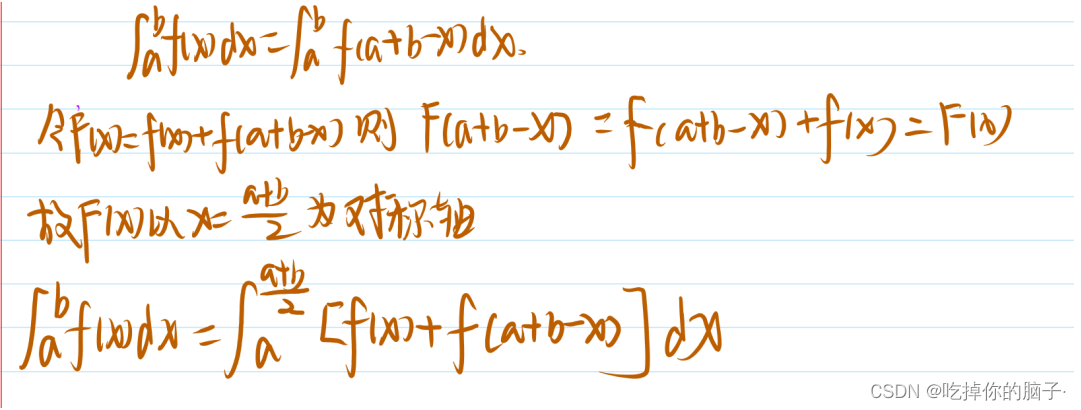 ∫_a^b f(x)dx=∫_a^b f(a+b-x)dx.
令F(x)=f(x)+f(a+b-x) 则 F(a+b-x) = f(a+b-x)+f(x)=F(x)
故F(x)以x=(a+b)/2为对称轴
∫_a^b f(x)dx=∫_a^{(a+b)/2} [f(x)+f(a+b-x)]dx
CSDN @吃掉你的脑子·